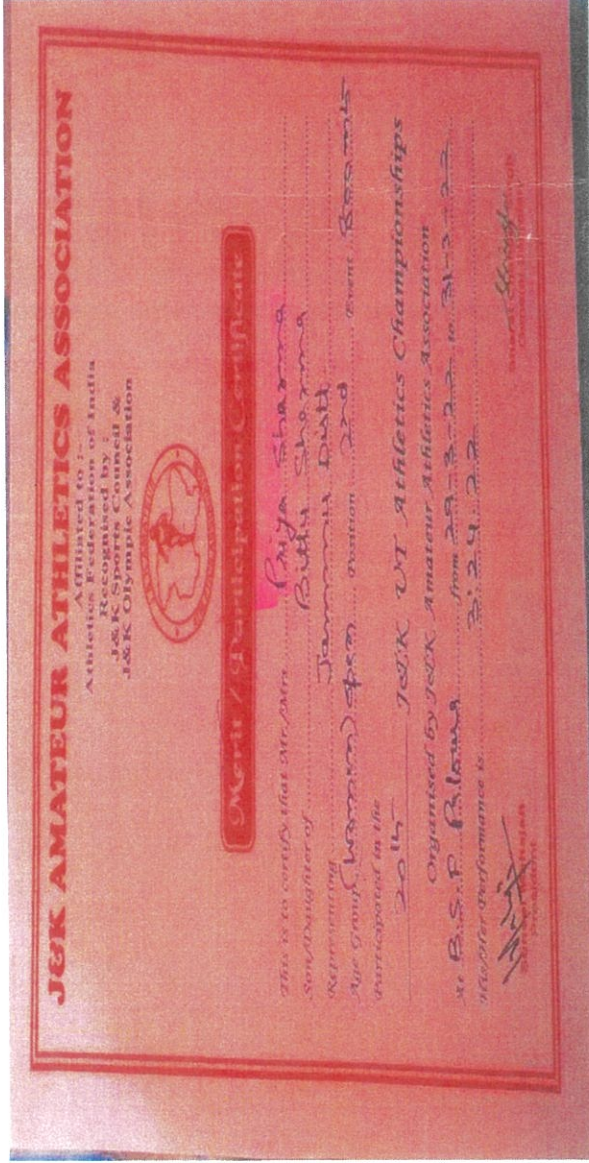 J&K AMATEUR ATHLETICS ASSOCIATION
Affiliated to :-
Athletics Federation of India
Recognised by :
J&K Sports Council &
J&K Olympic Association
Merit / Participation Certificate
This is to certify that Mr./Mrs. Priya Sharma
Son/Daughter of Bittu Sharma
Representing Jammu Distt
Age Group (Women) open Position 2nd Event 800 mts
Participated in the
20th J&K UT Athletics Championships
Organised by J&K Amateur Athletics Association
At B.S.F. from 29-3-22 to 31-3-22
His/Her Performance is 3:24.22
President